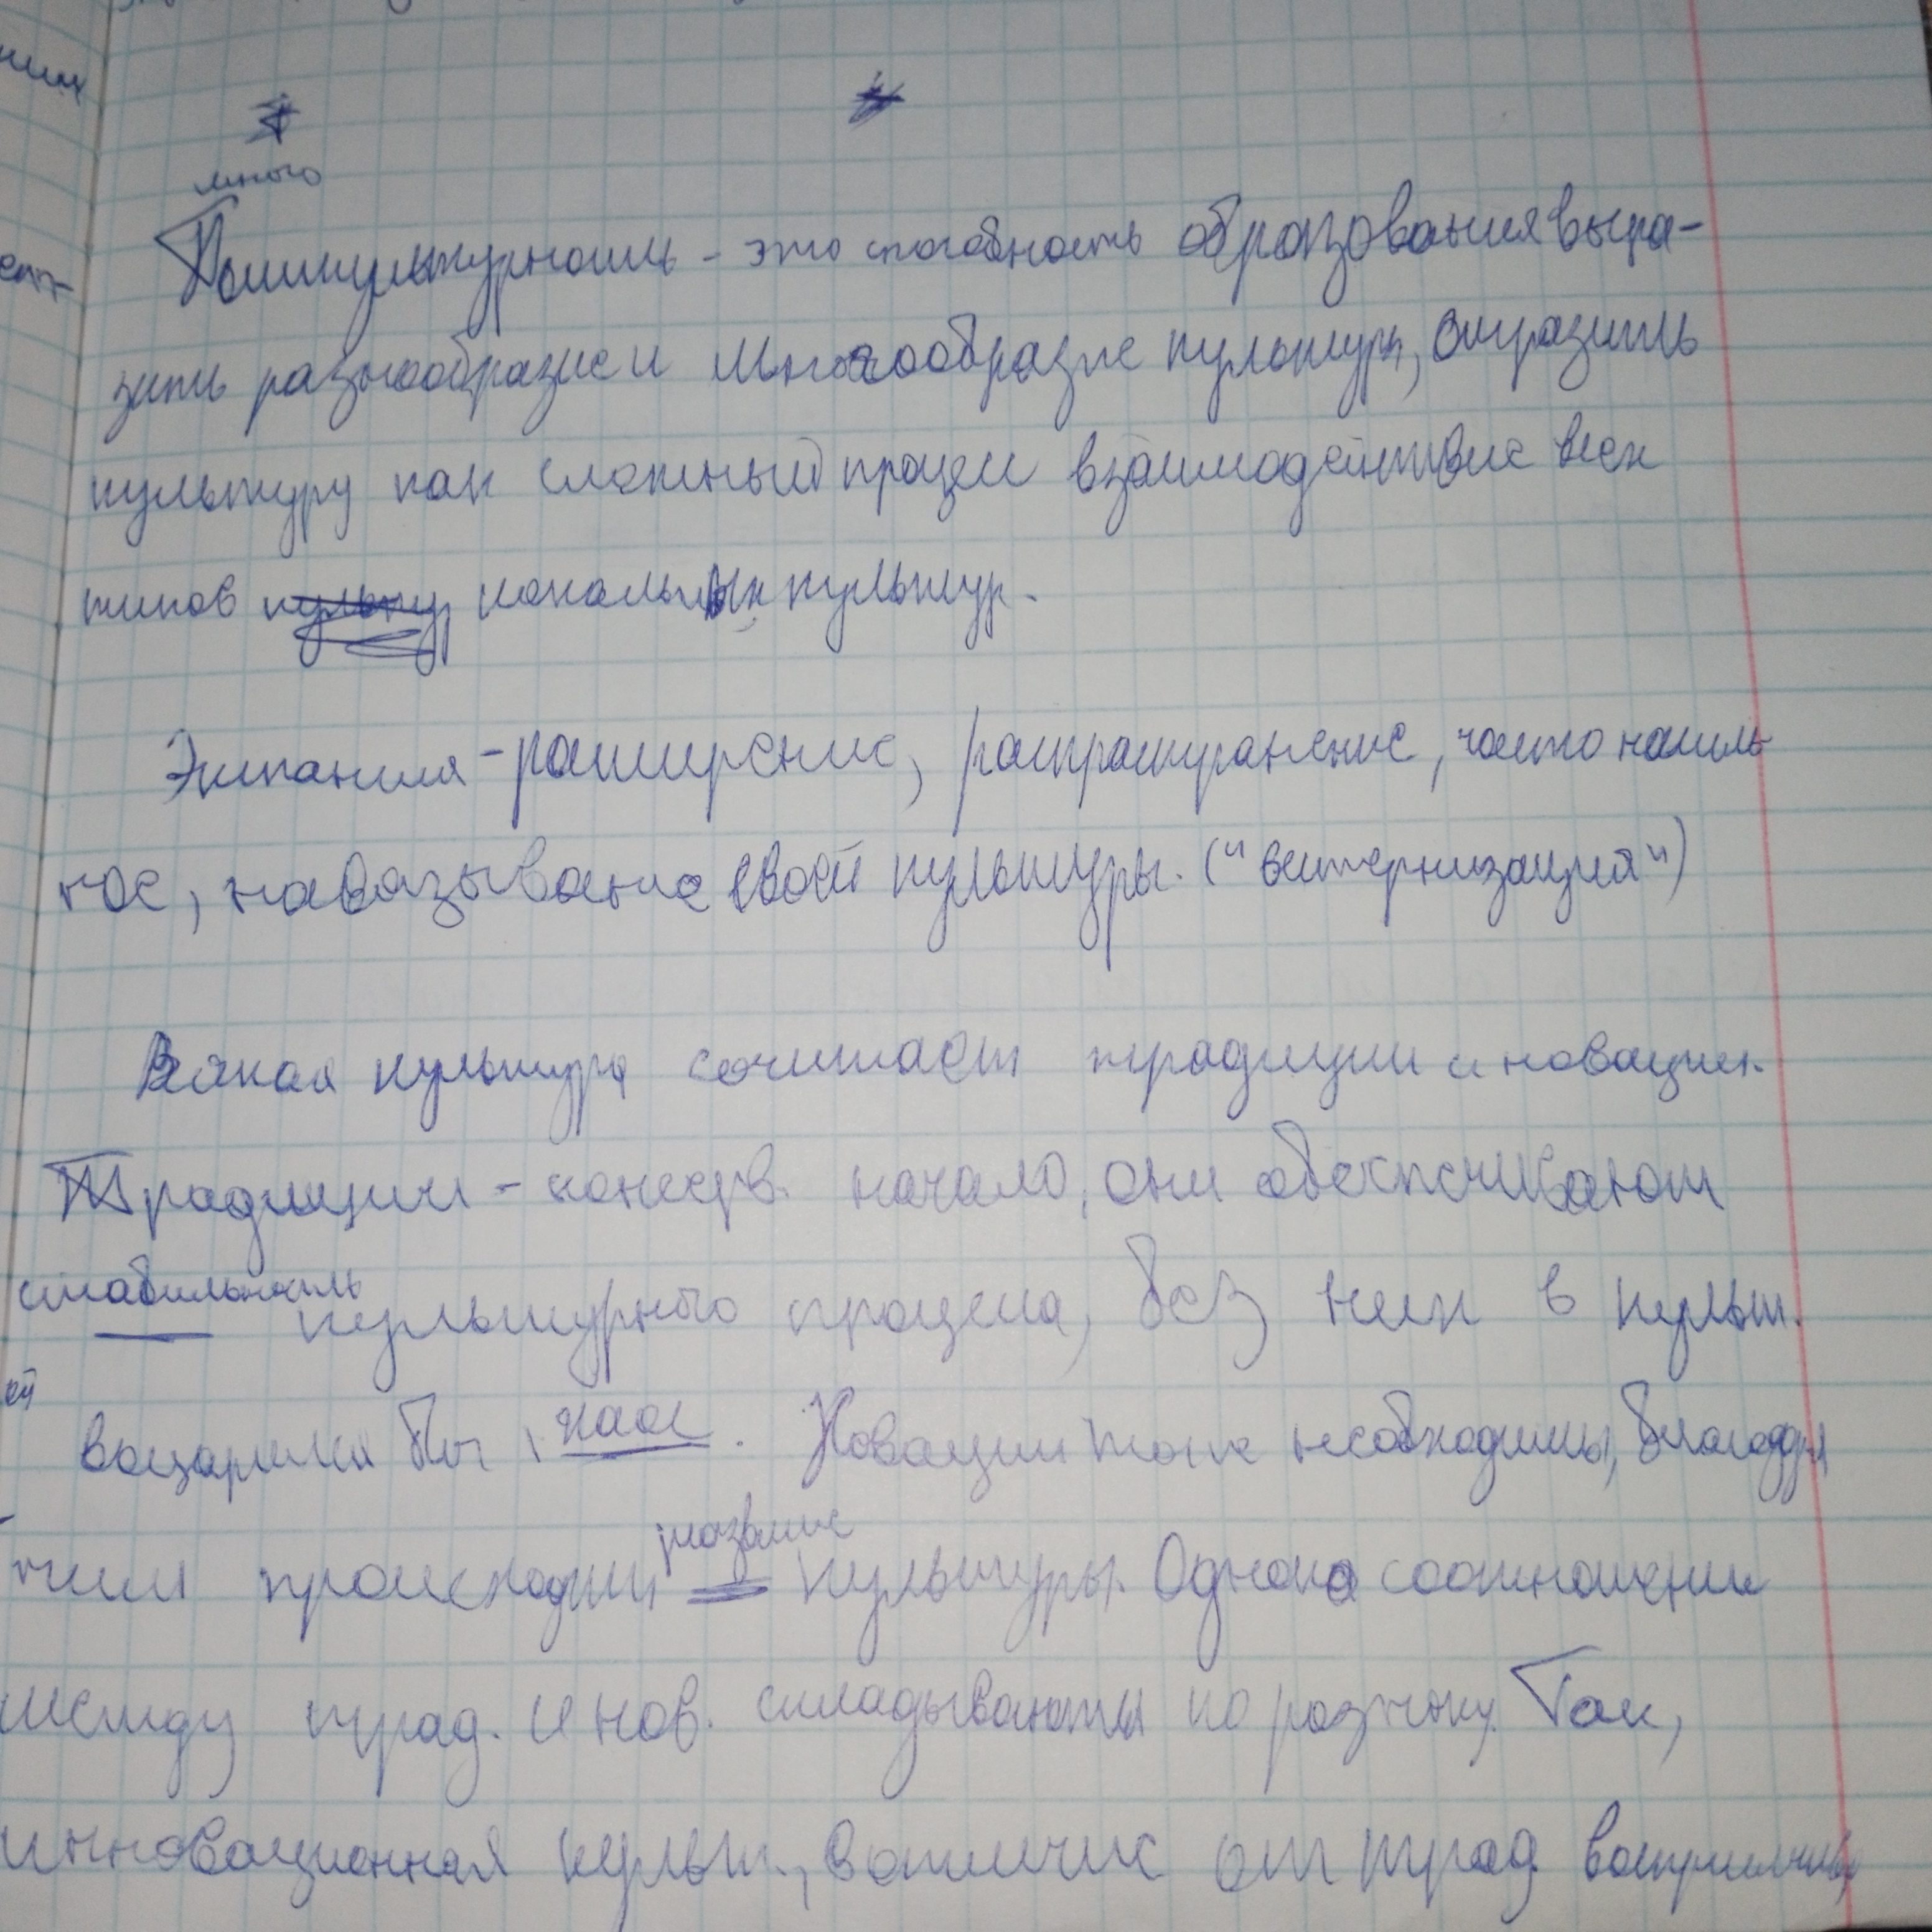 много
Поликультурность - это способность образования выра-
зить разнообразие и многообразие культуры, отразить
культуру как сложный процесс взаимодействие всех
типов культур локальных культур.
Экспансия - расширение, распространение, часто насиль
ное, навязывание своей культуры. ("вестернизация")
Всякая культура сочитает традиции и новации.
Традиции - консерв. начало, они обеспечивают
стабильность культурного процесса, без них в культ.
воцарился бы хаос. Новации тоже необходимы, благодаря
ним происходит развитие культуры. Однако соотношение
между трад. и нов. складываются по разному. Так,
инновационная культ., в отличие от трад. восприимчива